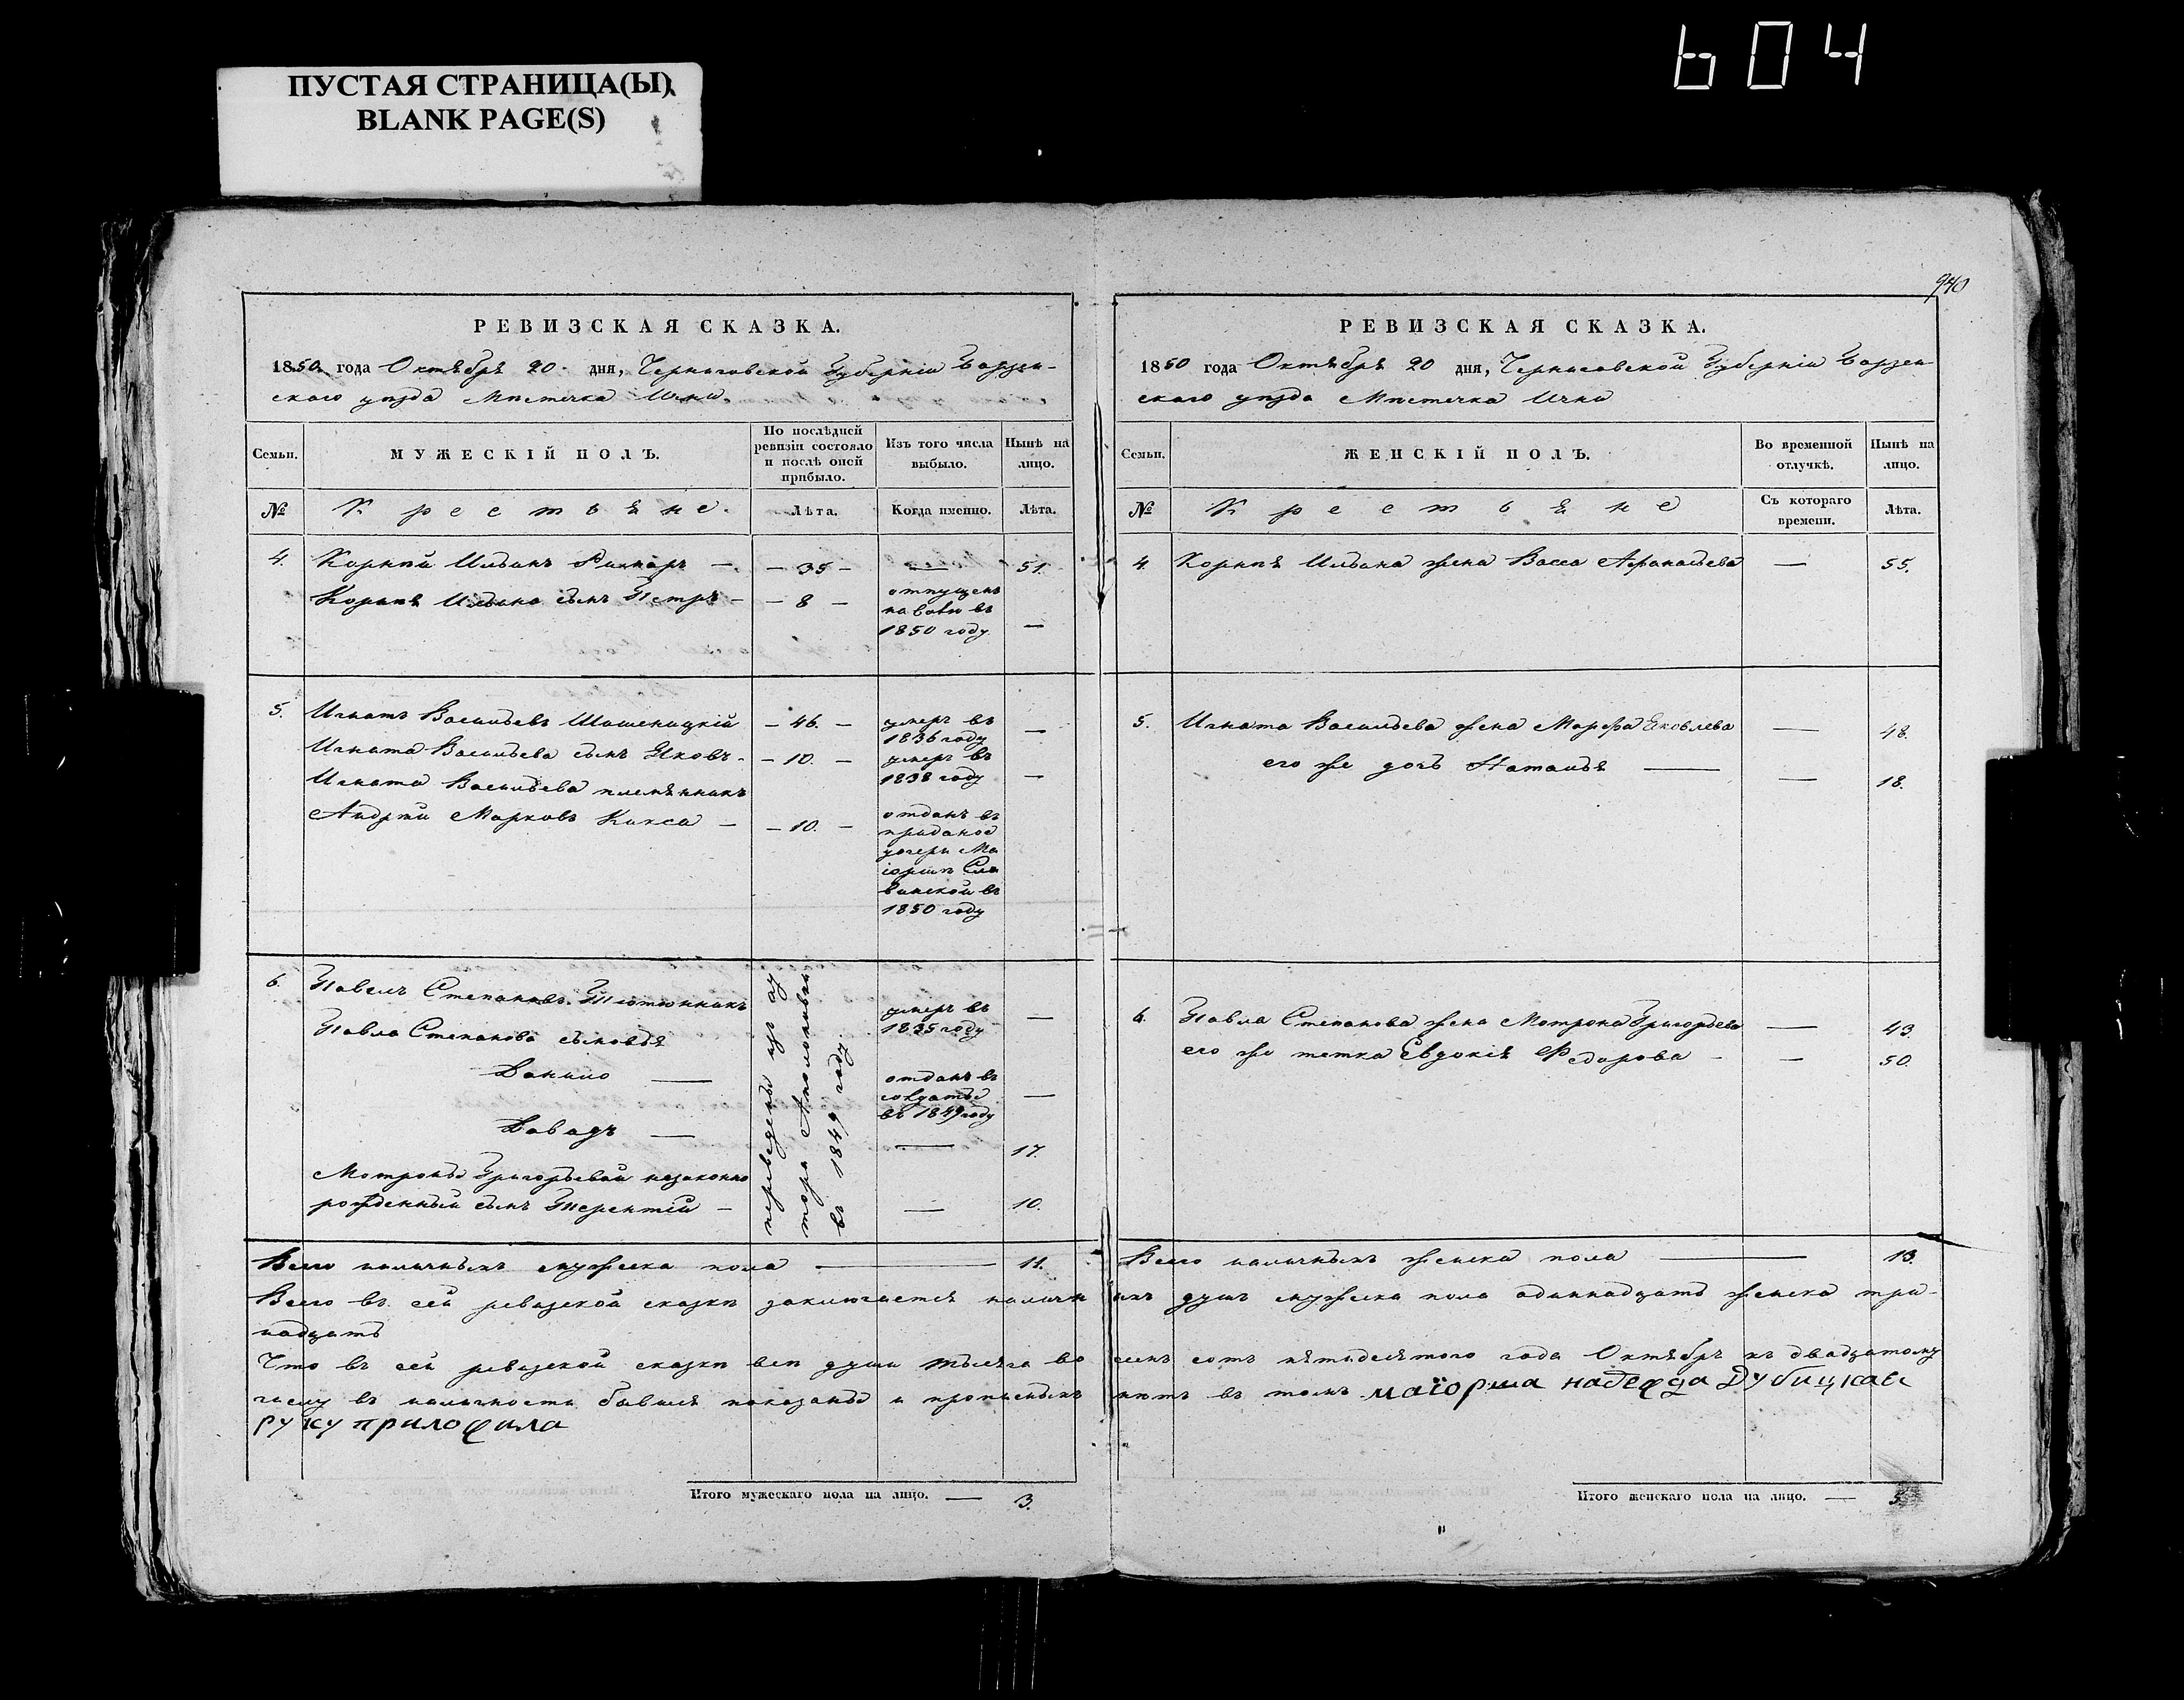 604
ПУСТАЯ СТРАНИЦА(Ы)
BLANK PAGE(S)
940
РЕВИЗСКАЯ СКАЗКА.
1850 года Октября 20 дня, Черниговской Губерніи Борзен-
скаго уѣзда Мѣстечка Ични
Семьи.
МУЖЕСКІЙ ПОЛЪ.
По послѣдней ревизіи состояло и послѣ оной прибыло.
Изъ того числа выбыло.
Нынѣ на лицо.
№
Крестьяне.
Лѣта.
Когда именно.
Лѣта.
4. Корнѣй Ильинъ — 35 — — 51.
Корнѣя Ильина сынъ Петръ — 8 — отпущенъ
на волю въ
1850 году —
5. Игнатъ Васильевъ — 46. — умеръ въ
1836 году —
Игната Васильева сынъ Яковъ — 10. — умеръ въ
1838 году —
Игната Васильева племянникъ
Андрѣй Марковъ Кикса — 10. — отданъ въ
приданое
дочери Ма
іоршѣ Сла
винской въ
1850 году
6. Павелъ Степановъ Тютюнникъ умеръ въ
1835 году —
Павла Степанова сыновья
Данило — отданъ въ
солдаты
въ 1849 году —
Давидъ — — 17.
Мотроны Григорьевой незаконно
рожденный сынъ Терентій — — 10.
переведены изъ ху
тора
въ 1849 году
Всего наличныхъ мужеска пола — 11.
РЕВИЗСКАЯ СКАЗКА.
1850 года Октября 20 дня, Черниговской Губерніи Борзен-
скаго уѣзда Мѣстечка Ични
Семьи.
ЖЕНСКІЙ ПОЛЪ.
Во временной отлучкѣ.
Нынѣ на лицо.
№
Крестьяне
Съ котораго времени.
Лѣта.
4. Корнѣя Ильина жена Васса Афанасьева — 55.
5. Игната Васильева жена Марфа Яковлева — 48.
его же дочь Наталья — — 18.
6. Павла Степанова жена Мотрона Григорьева — 43.
его же тетка Евдокія Федорова — — 50.
Всего наличныхъ женска пола — 13.
Всего въ сей ревизской сказкѣ заключается наличныхъ душъ мужеска пола одиннадцать женска три-
надцать
Что въ сей ревизской сказкѣ всѣ души тысяча восемь сотъ пятидесятого года Октября къ двадцатому
числу въ наличности бывшія показаны и прописныхъ нѣтъ въ томъ маіорша надежда Дубицкая
руку приложила
Итого мужескаго пола на лицо. — 3.
Итого женскаго пола на лицо. — 5.